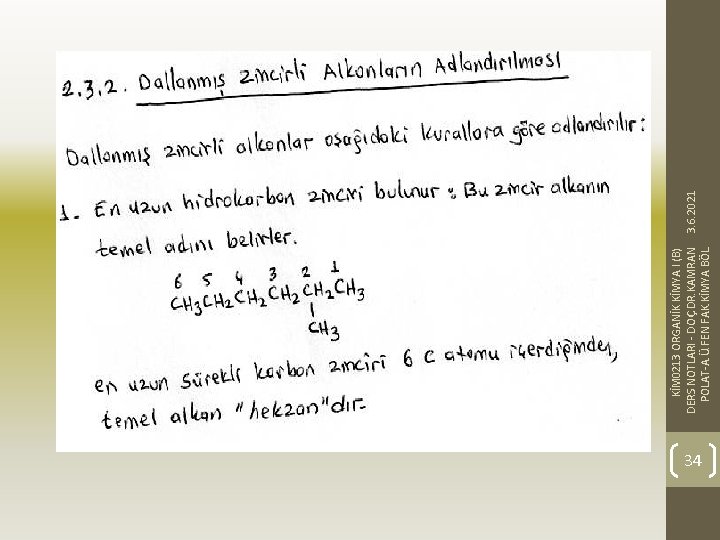 2.3.2. Dallanmış Zincirli Alkanların Adlandırılması
Dallanmış zincirli alkanlar aşağıdaki kurallara göre adlandırılır:
1. En uzun hidrokarbon zinciri bulunur; Bu zincir alkanın
temel adını belirler.
6 5 4 3 2 1
CH3CH2CH2CH2CH2CH3
CH3
en uzun sürekli karbon zinciri 6 C atomu içerdiğinden,
temel alkan "hekzan"dır.
3.6.2021
KİM0213 ORGANİK KİMYA I (B)
DERS NOTLARI - DOÇ.DR.KAMRAN
POLAT-A.Ü.FEN FAK KİMYA BÖL
34